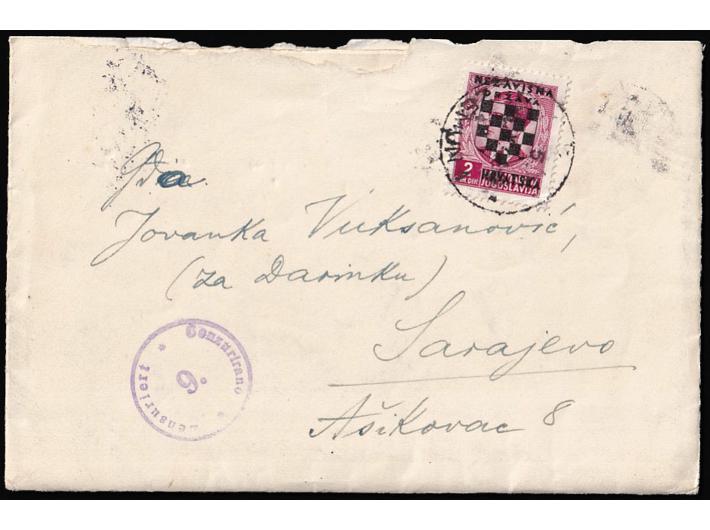 NEZAVISNA
DRŽAVA
HRVATSKA
2
DIN
JUGOSLAVIJA
Jovanka Vuksanović,
(za Darinku)
Sarajevo
Ašikovac 8
Cenzurirano * Zensuriert *
9.